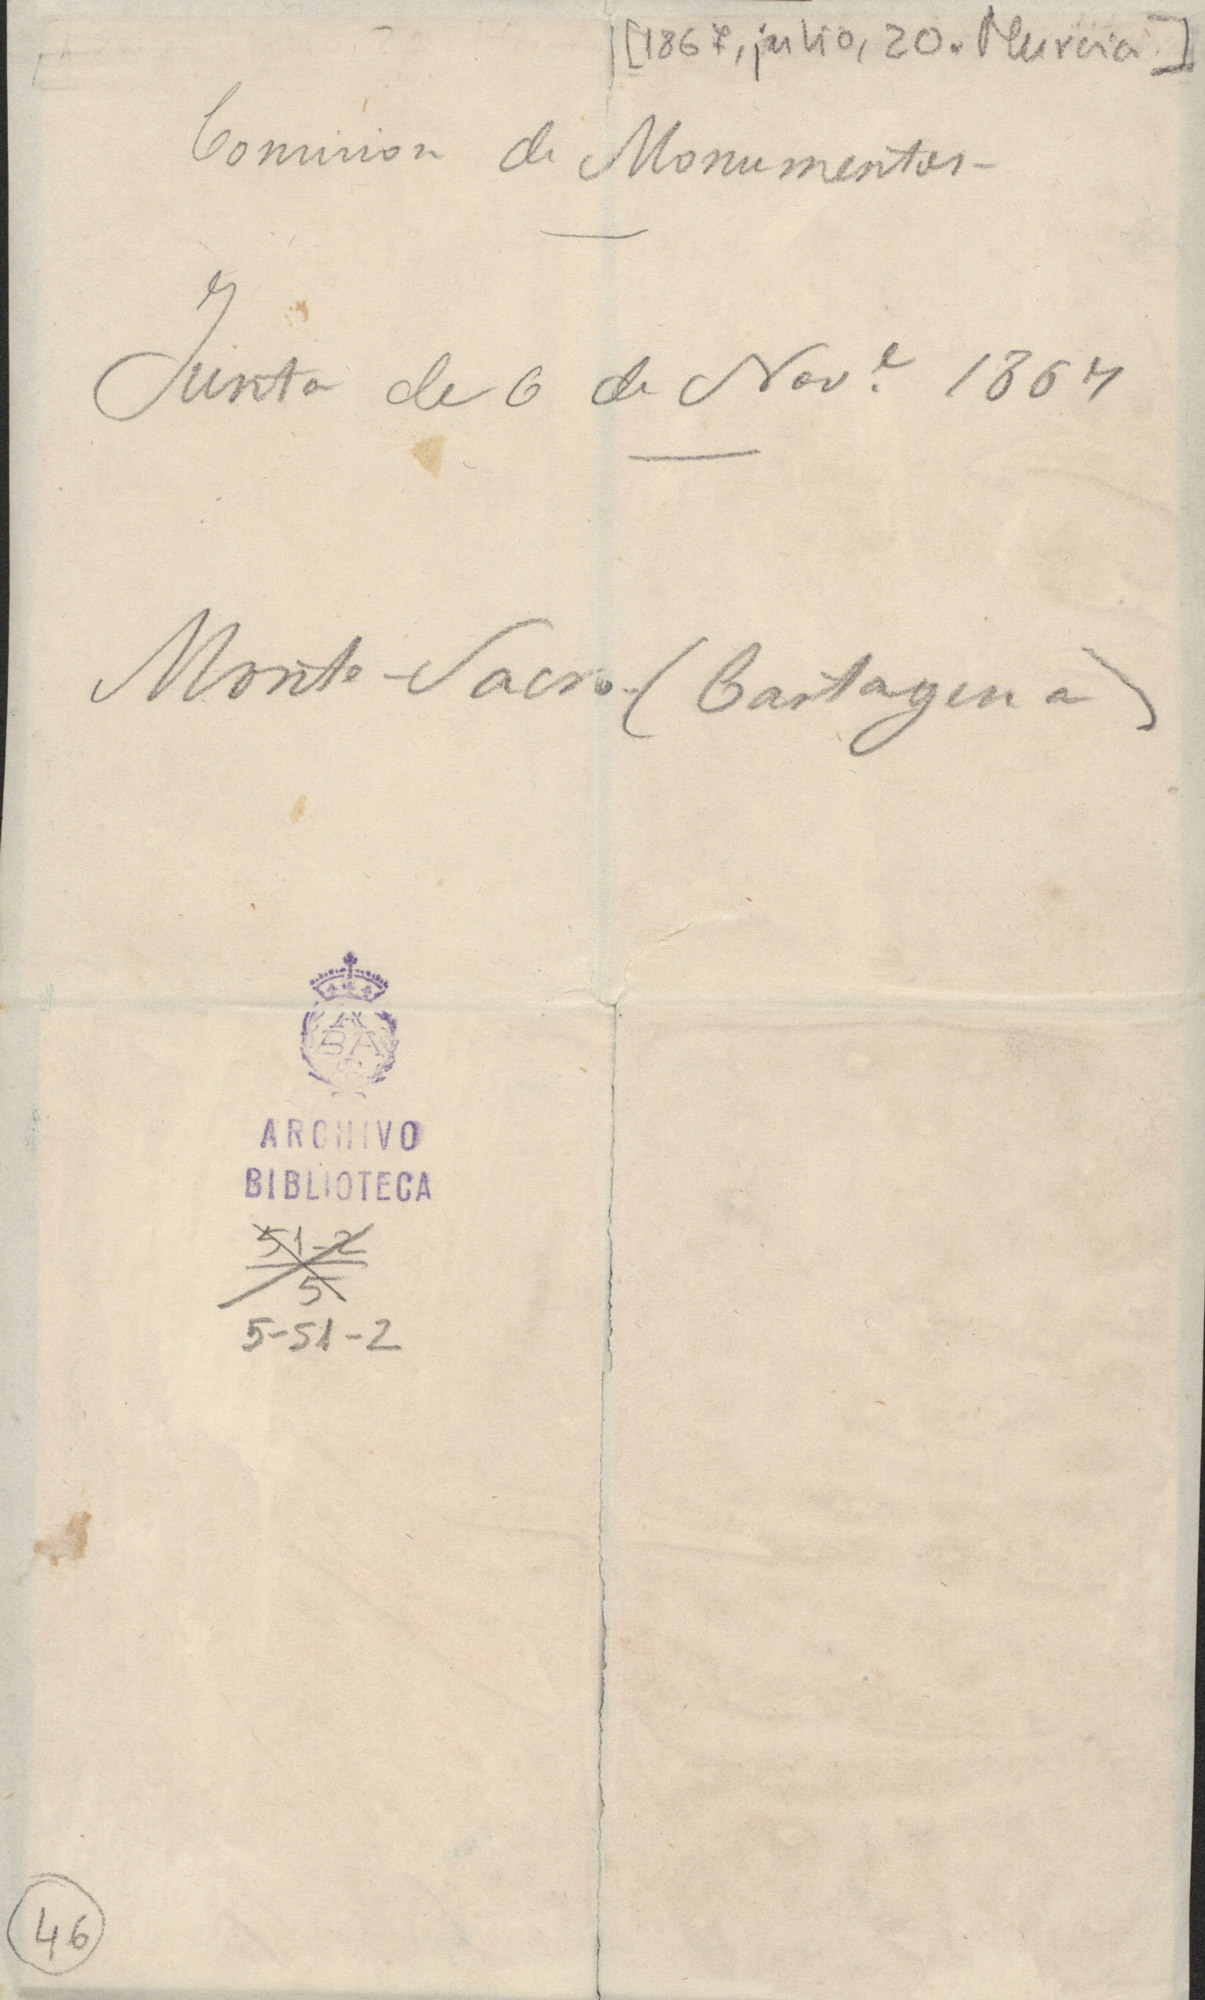 [1867, julio, 20. Murcia]
Comision de Monumentos-
Junta de 6 de Nov.e 1867
Monte-Sacro-(Cartagena)
A
BA
ARCHIVO
BIBLIOTECA
51-2
5
5-51-2
46